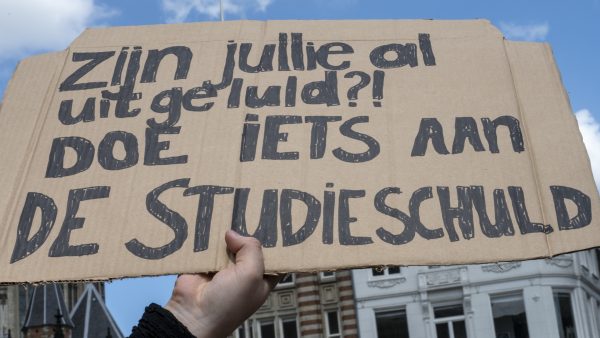 Zijn jullie al
uitgeluld?!
DOE iETS AAN
DE STUDiESCHULD